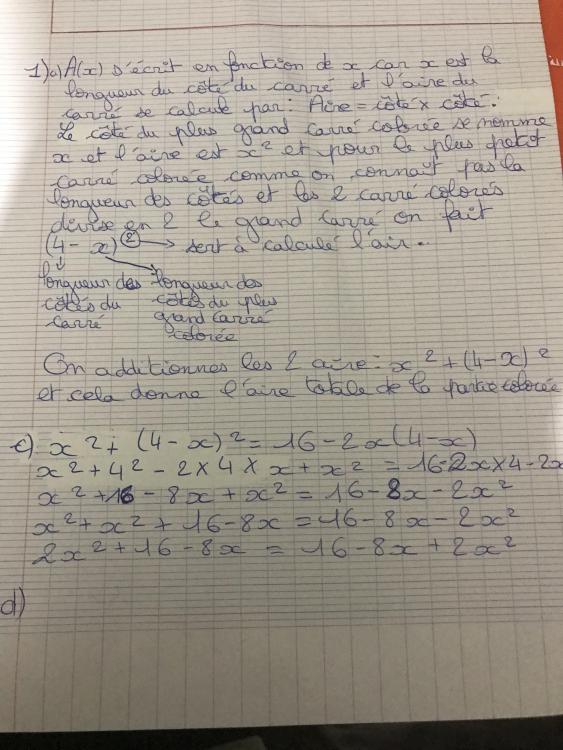 1) a) A(x) s'écrit en fonction de x car x est la
longueur du côté du carré et l'aire du
carré se calcule par : Aire = côté × côté.
Le côté du plus grand carré colorée se nomme
x et l'aire est x² et pour le plus petit
carré colorée comme on connait pas la
longueur des côtés et les 2 carré colorés
divise en 2 le grand carré on fait
(4 - x)② → sert à calculé l'air..
longueur des
côtés du
carré
longueur des
côtés du plus
grand carré
colorée
On additionnes les 2 aire : x² + (4-x)²
et cela donne l'aire totale de la partie colorée
c) x² + (4-x)² = 16 - 2x(4-x)
x² + 4² - 2×4×x + x² = 16-2x×4-2x
x² + 16 - 8x + x² = 16 - 8x - 2x²
x² + x² + 16 - 8x = 16 - 8x - 2x²
2x² + 16 - 8x = 16 - 8x + 2x²
d)